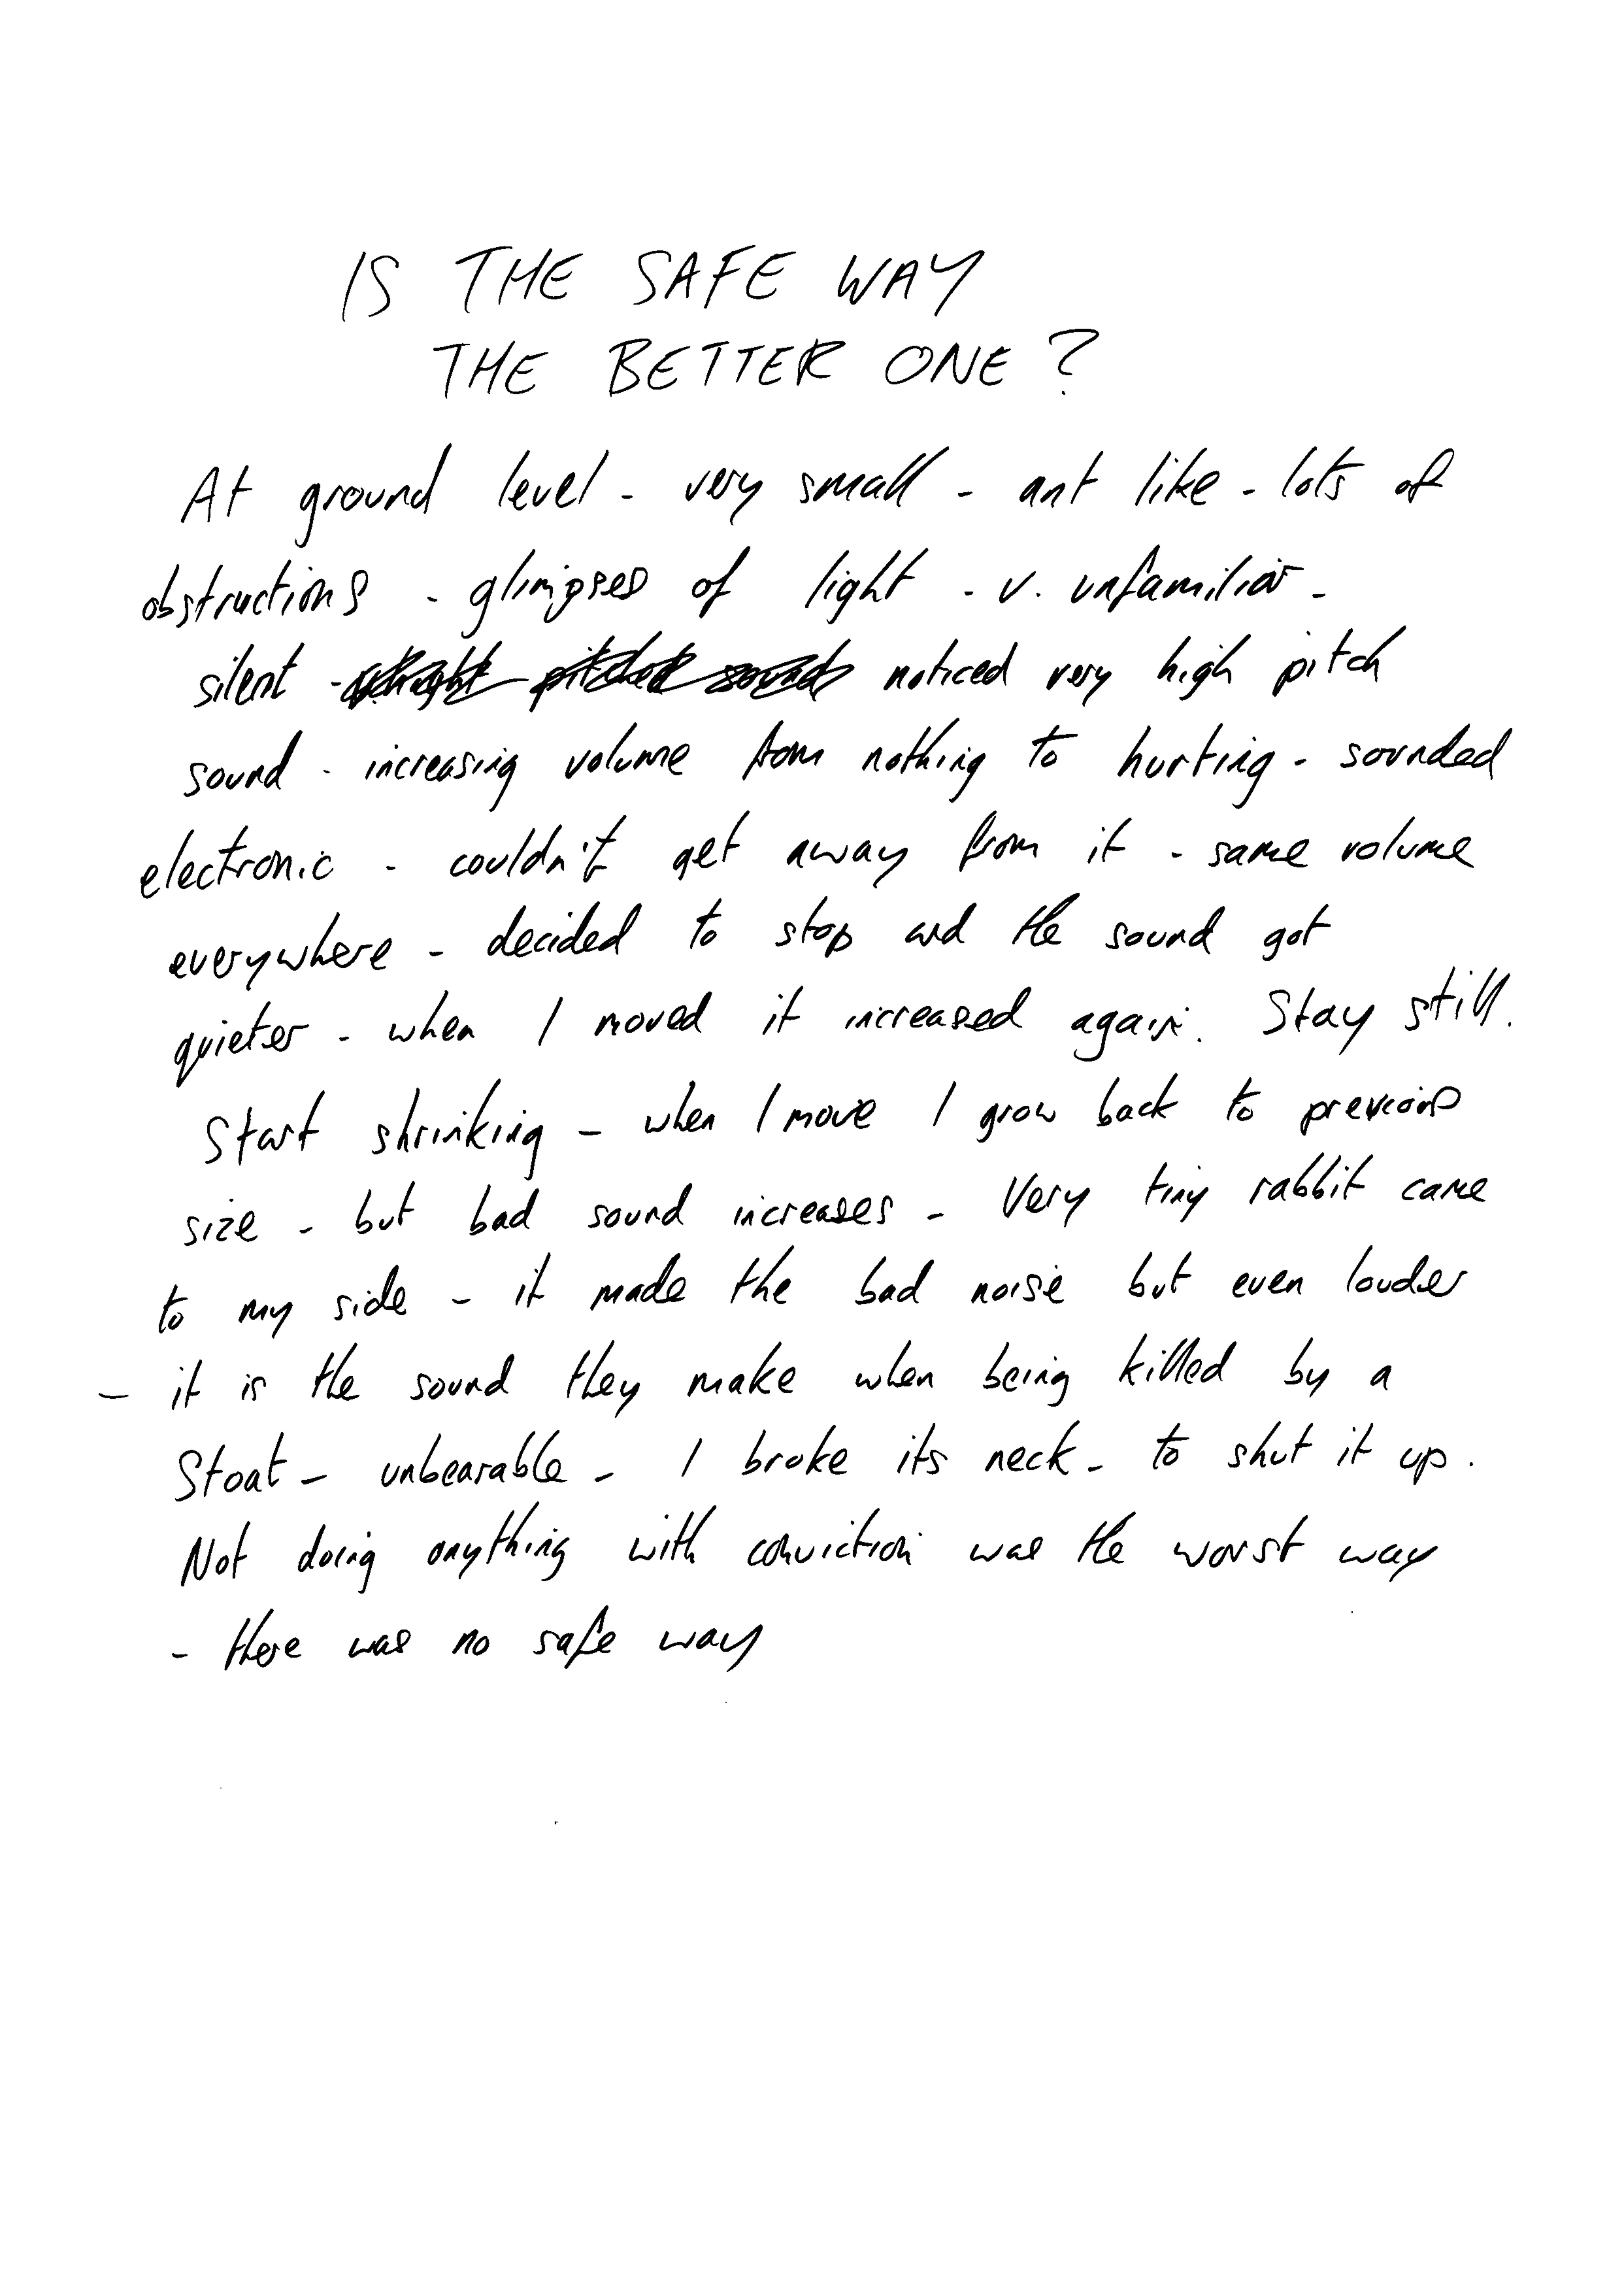 IS THE SAFE WAY
THE BETTER ONE?
At ground level - very small - ant like - lots of
obstructions - glimpses of light - v. unfamiliar -
silent - noticed very high pitch
sound - increasing volume from nothing to hurting - sounded
electronic - couldn't get away from it - same volume
everywhere - decided to stop and the sound got
quieter - when I moved it increased again. Stay still.
Start shrinking - when I move I grow back to previous
size - but bad sound increases - Very tiny rabbit came
to my side - it made the bad noise but even louder
- it is the sound they make when being killed by a
Stoat - unbearable - I broke its neck - to shut it up.
Not doing anything with conviction was the worst way
- there was no safe way